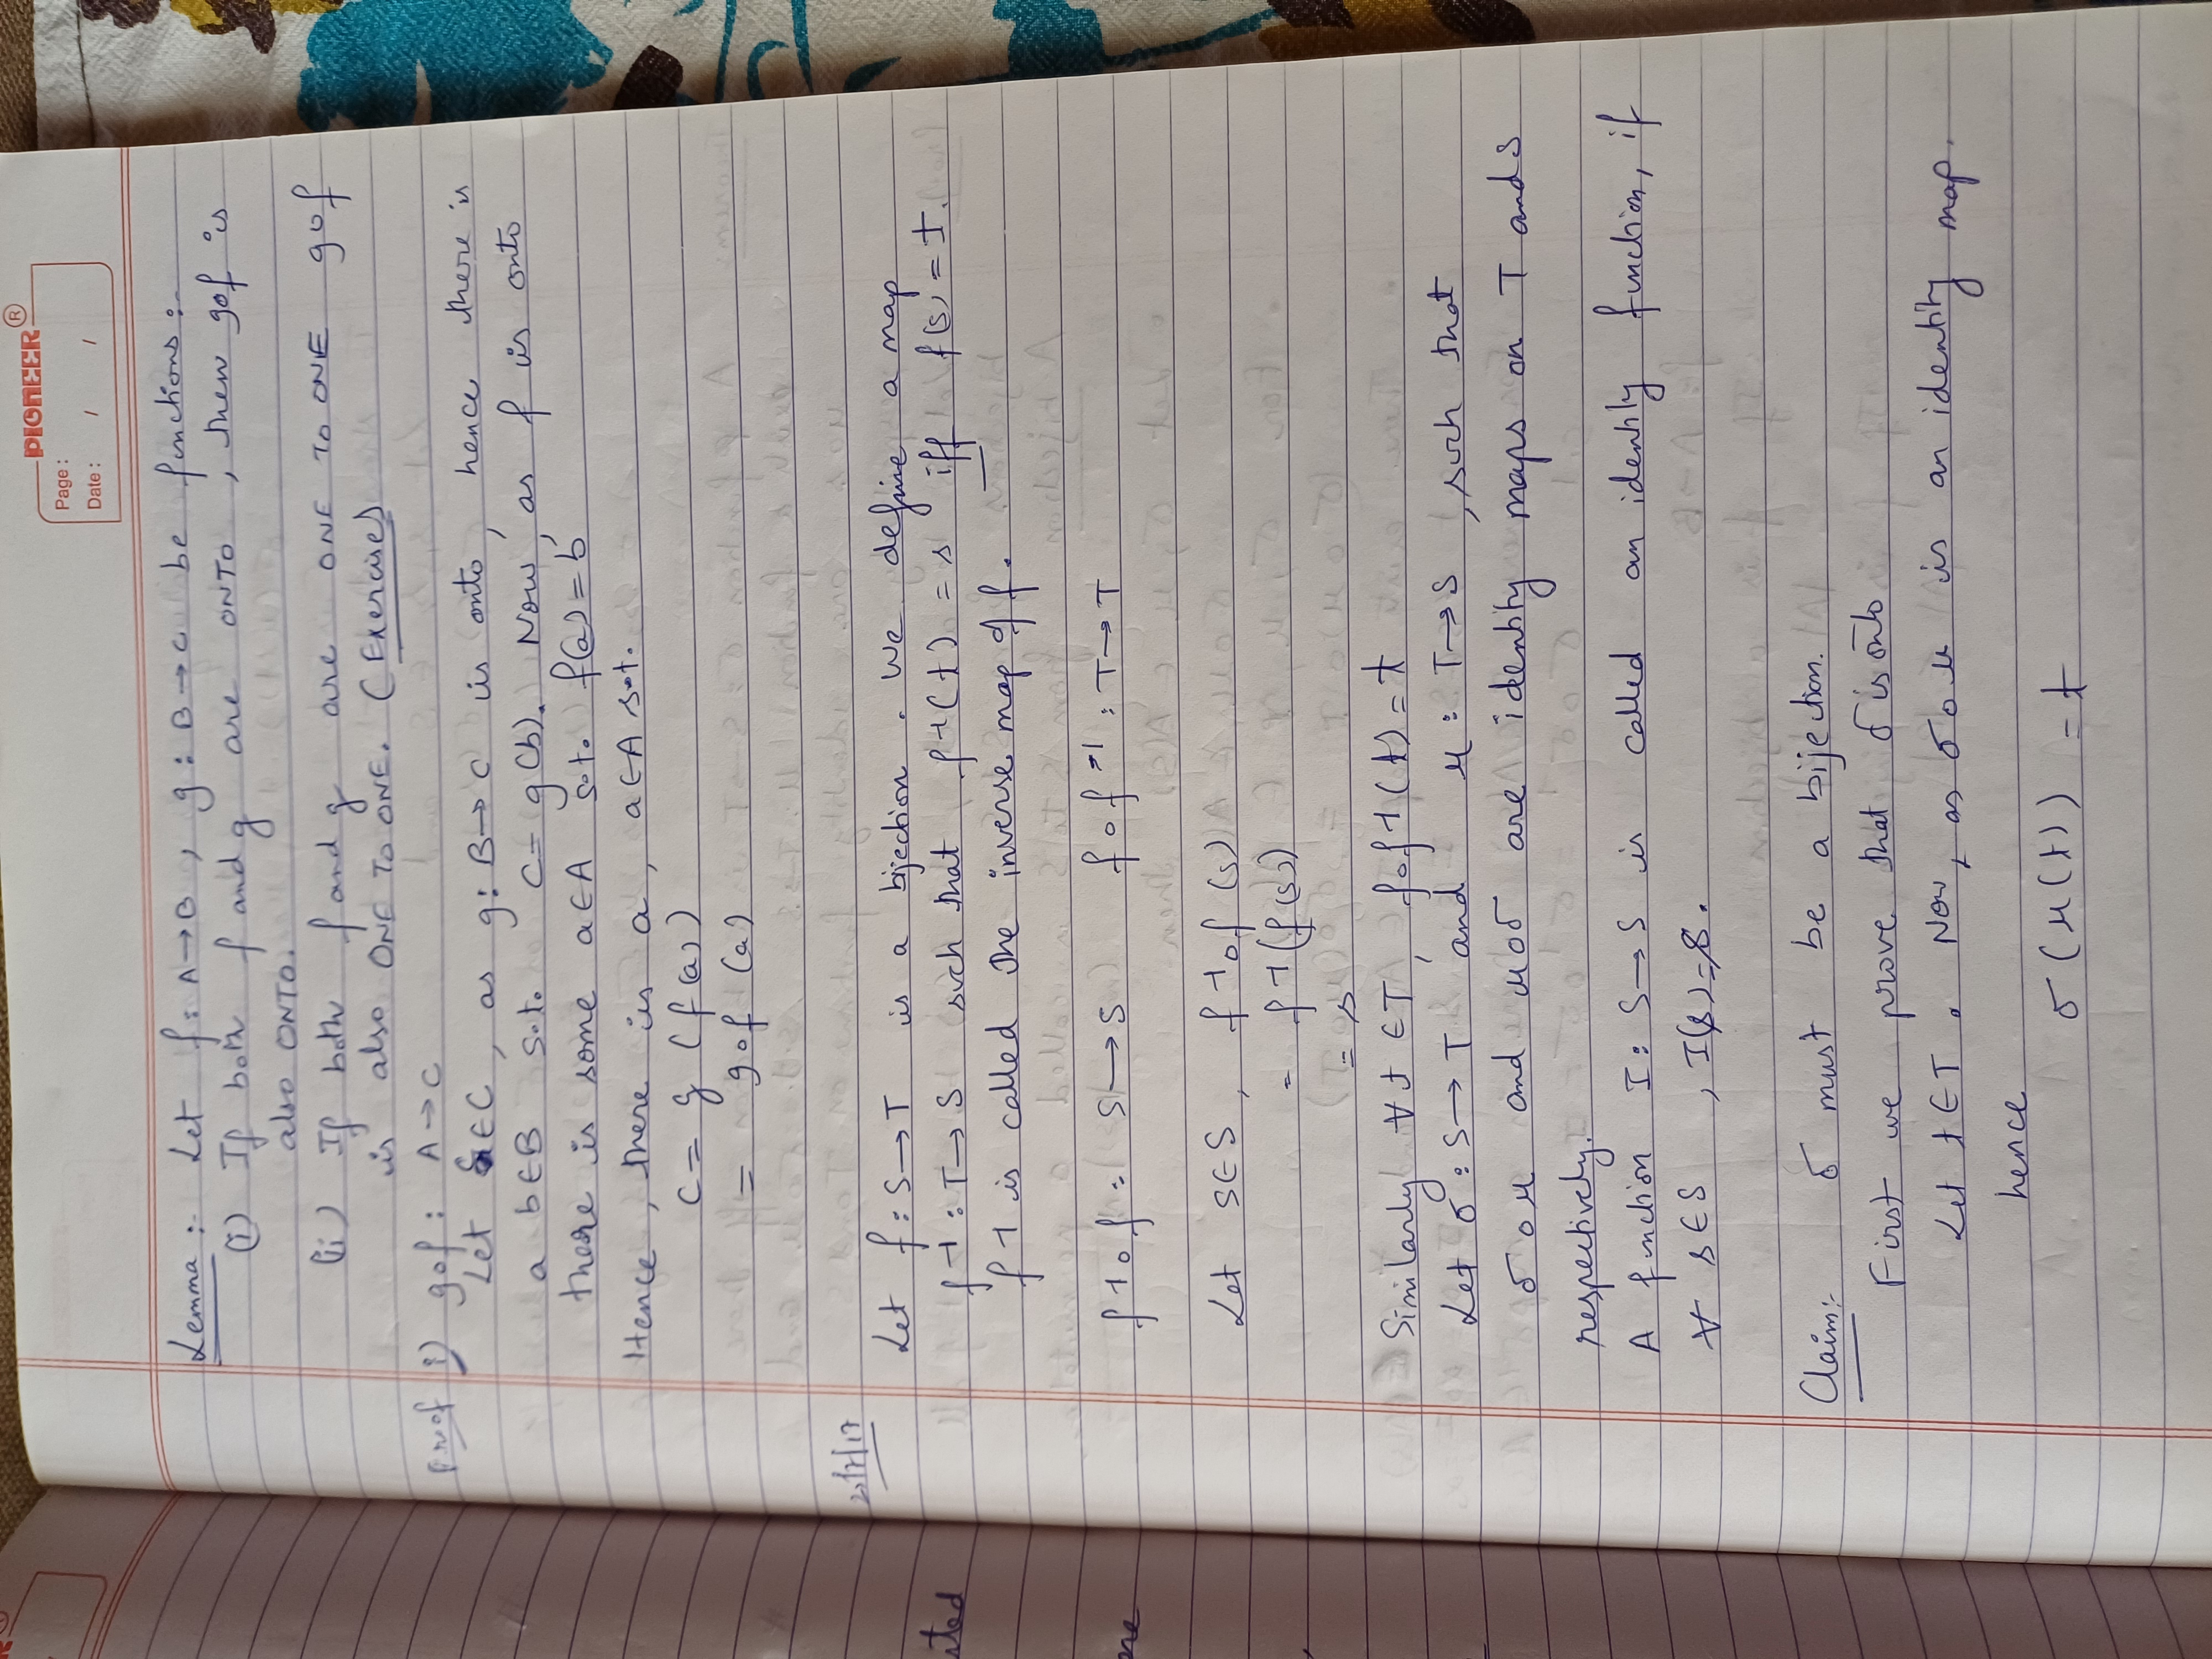 PIONEER®
Page :
Date : / /
Lemma :- Let f : A→B , g : B→C be functions :-
(i) If both f and g are ONTO , then gof is
also ONTO.
(ii) If both f and g are ONE TO ONE gof
is also ONE TO ONE. (Exercise)
Proof i) gof : A→C
Let c∈C , as g : B→C is onto , hence there is
a b∈B s.t. C = g(b). Now , as f is onto
there is some a∈A s.t. f(a) = b
Hence , there is a , a∈A s.t.
C = g (f(a))
= gof (a)
Let f : S→T is a bijection . We define a map
f-1 : T→S such that f-1(t) = s iff f(s) = t.
f-1 is called the inverse map of f.
f-1of : S→S fof-1 : T→T
Let s∈S , f-1of (s)
= f-1(f(s))
= s
Similarly ∀ t ∈T , fof-1(t) = t
Let σ : S→T and μ : T→S , such that
σoμ and μoσ are identity maps on T and S
respectively.
A function I : S→S is called an identity function, if
∀ s∈S , I(s) = s.
Claim:- σ must be a bijection.
First we prove that σ is onto
Let t∈T . Now, as σoμ is an identity map.
hence
σ(μ(t)) = t
sted
ene